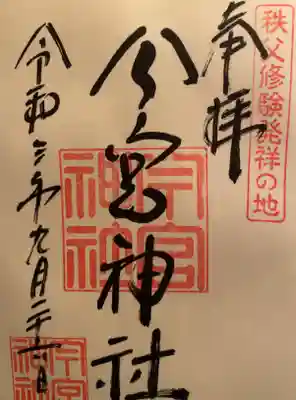 秩父修験発祥の地
奉拝
今宮神社
今宮
神社
令和 年九月二十 日
今宮
神社